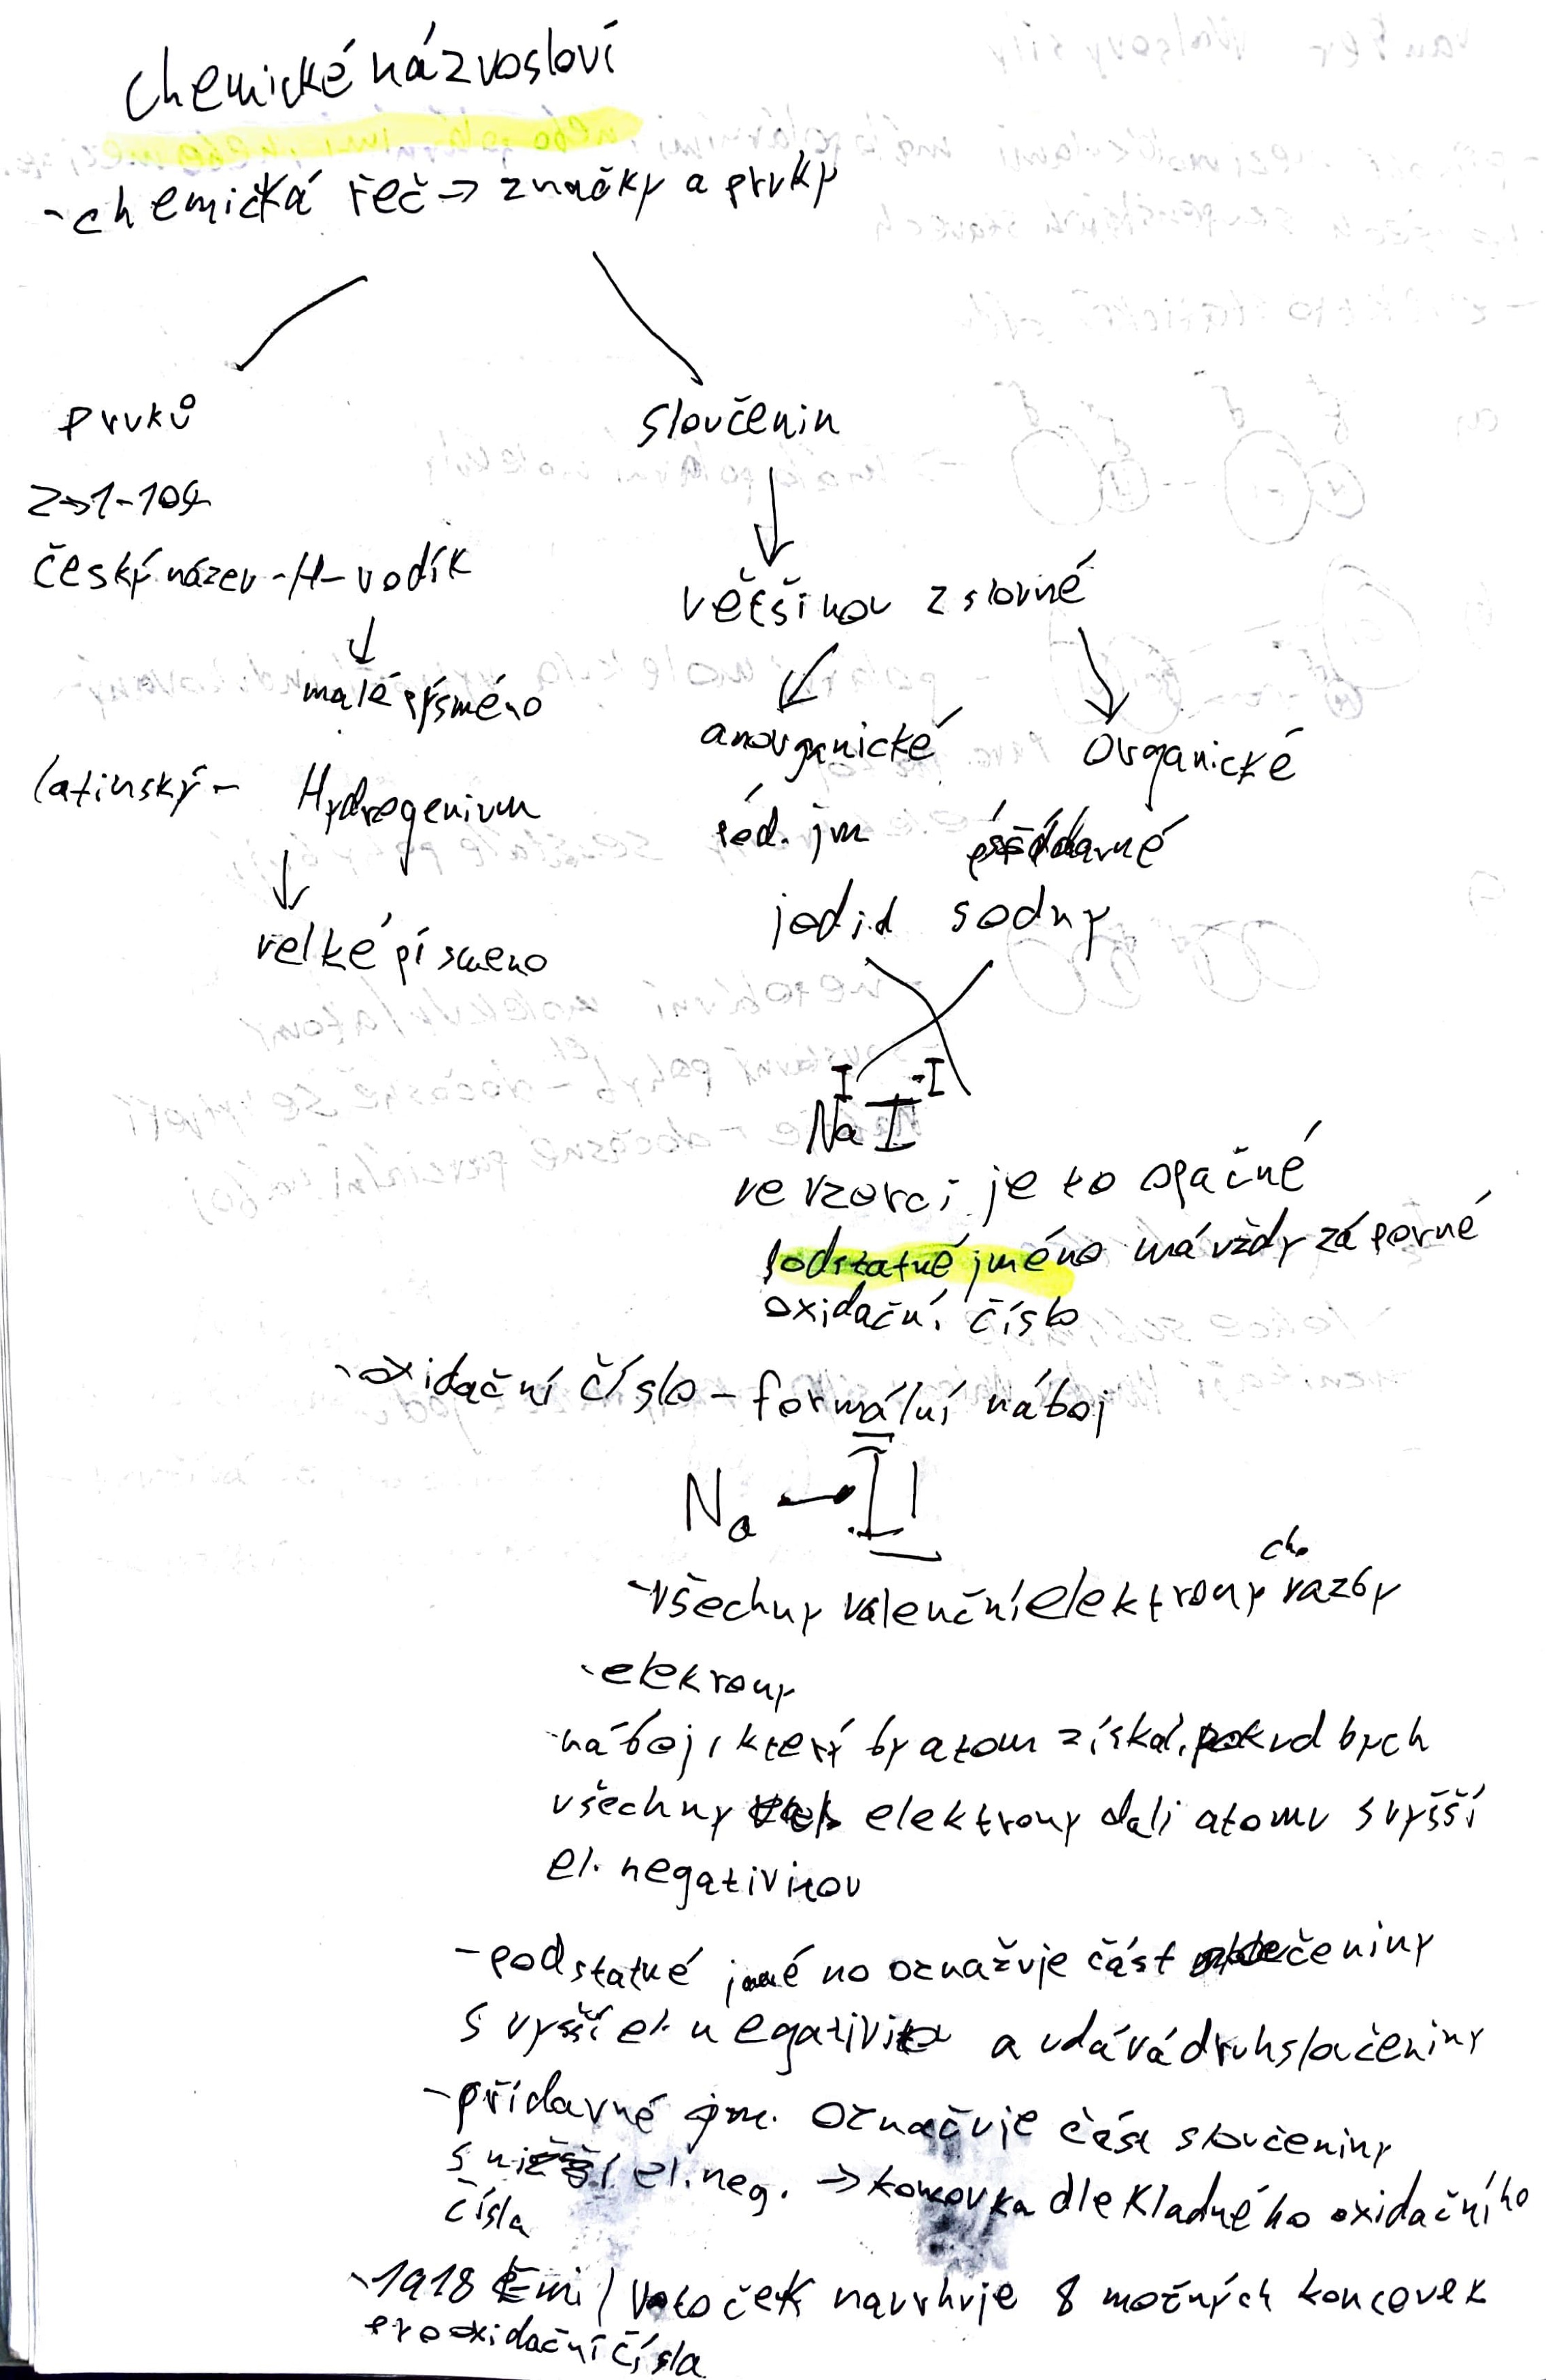 Chemické názvosloví
- chemická řeč → značky a prvky
prvků
Z→1-104
český název - H - vodík
↓
malé pýsméno
latinský - Hydrogenium
↓
velké písmeno
sloučenin
↓
většinou 2 slovné
anorganické
organické
pod. jm
přídavné
jodid sodny
I -I
Na I
ve vzorci je to opačné
podstatné jméno má vždy záporné
oxidační číslo
- oxidační číslo - formální náboj
Na I
- všechny valenční elektrony ch. vazby
- elekrony
- náboj, který by atom získal, pokud bych
všechny elektrony dali atomu s vyšší
el. negativitou
- podstatné jméno označuje část sloučeniny
s vyšší el. negativitou a udává druh sloučeniny
- přídavné jm. označuje část sloučeniny
s nižší el. neg. → koncovka dle kladného oxidačního
čísla
- 1918 Emil Votoček navrhuje 8 možných koncovek
pro oxidační čísla